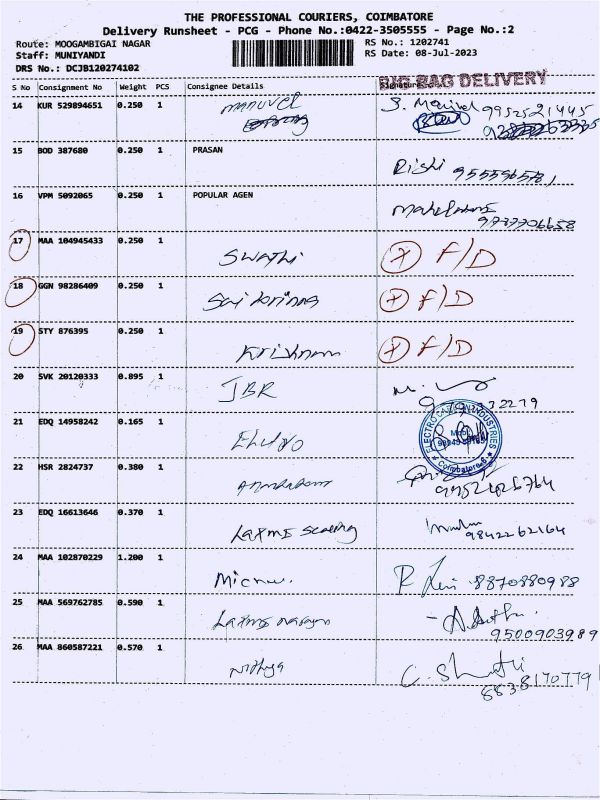 THE PROFESSIONAL COURIERS, COIMBATORE
Delivery Runsheet - PCG - Phone No.:0422-3505555 - Page No.:2
Route: MOOGAMBIGAI NAGAR RS No.: 1202741
Staff: MUNIYANDI RS Date: 08-Jul-2023
DRS No.: DCJB120274102
BIG BAG DELIVERY
S No Consignment No Weight PCS Consignee Details
14 KUR 529894651 0.250 1 manuvel 9952521445
15 BOD 387680 0.250 1 PRASAN
Rishi
16 VPM 5092065 0.250 1 POPULAR AGEN
9787706658
17 MAA 104945433 0.250 1 SWATHI F/D
18 GGN 98286409 0.250 1 Sai krinna F/D
19 STY 876395 0.250 1 Krishnam F/D
20 SVK 20120333 0.895 1 JBR
21 EDQ 14958242 0.165 1
ELECTRO CARBON INDUSTRIES
Coimbatore-6
22 HSR 2824737 0.380 1
23 EDQ 16613646 0.370 1 Laxmi
9842262164
24 MAA 102870229 1.200 1 8870880988
25 MAA 569762785 0.590 1 Laxmi narayan
9500903989
26 MAA 860587221 0.570 1 Nithya
8838170779